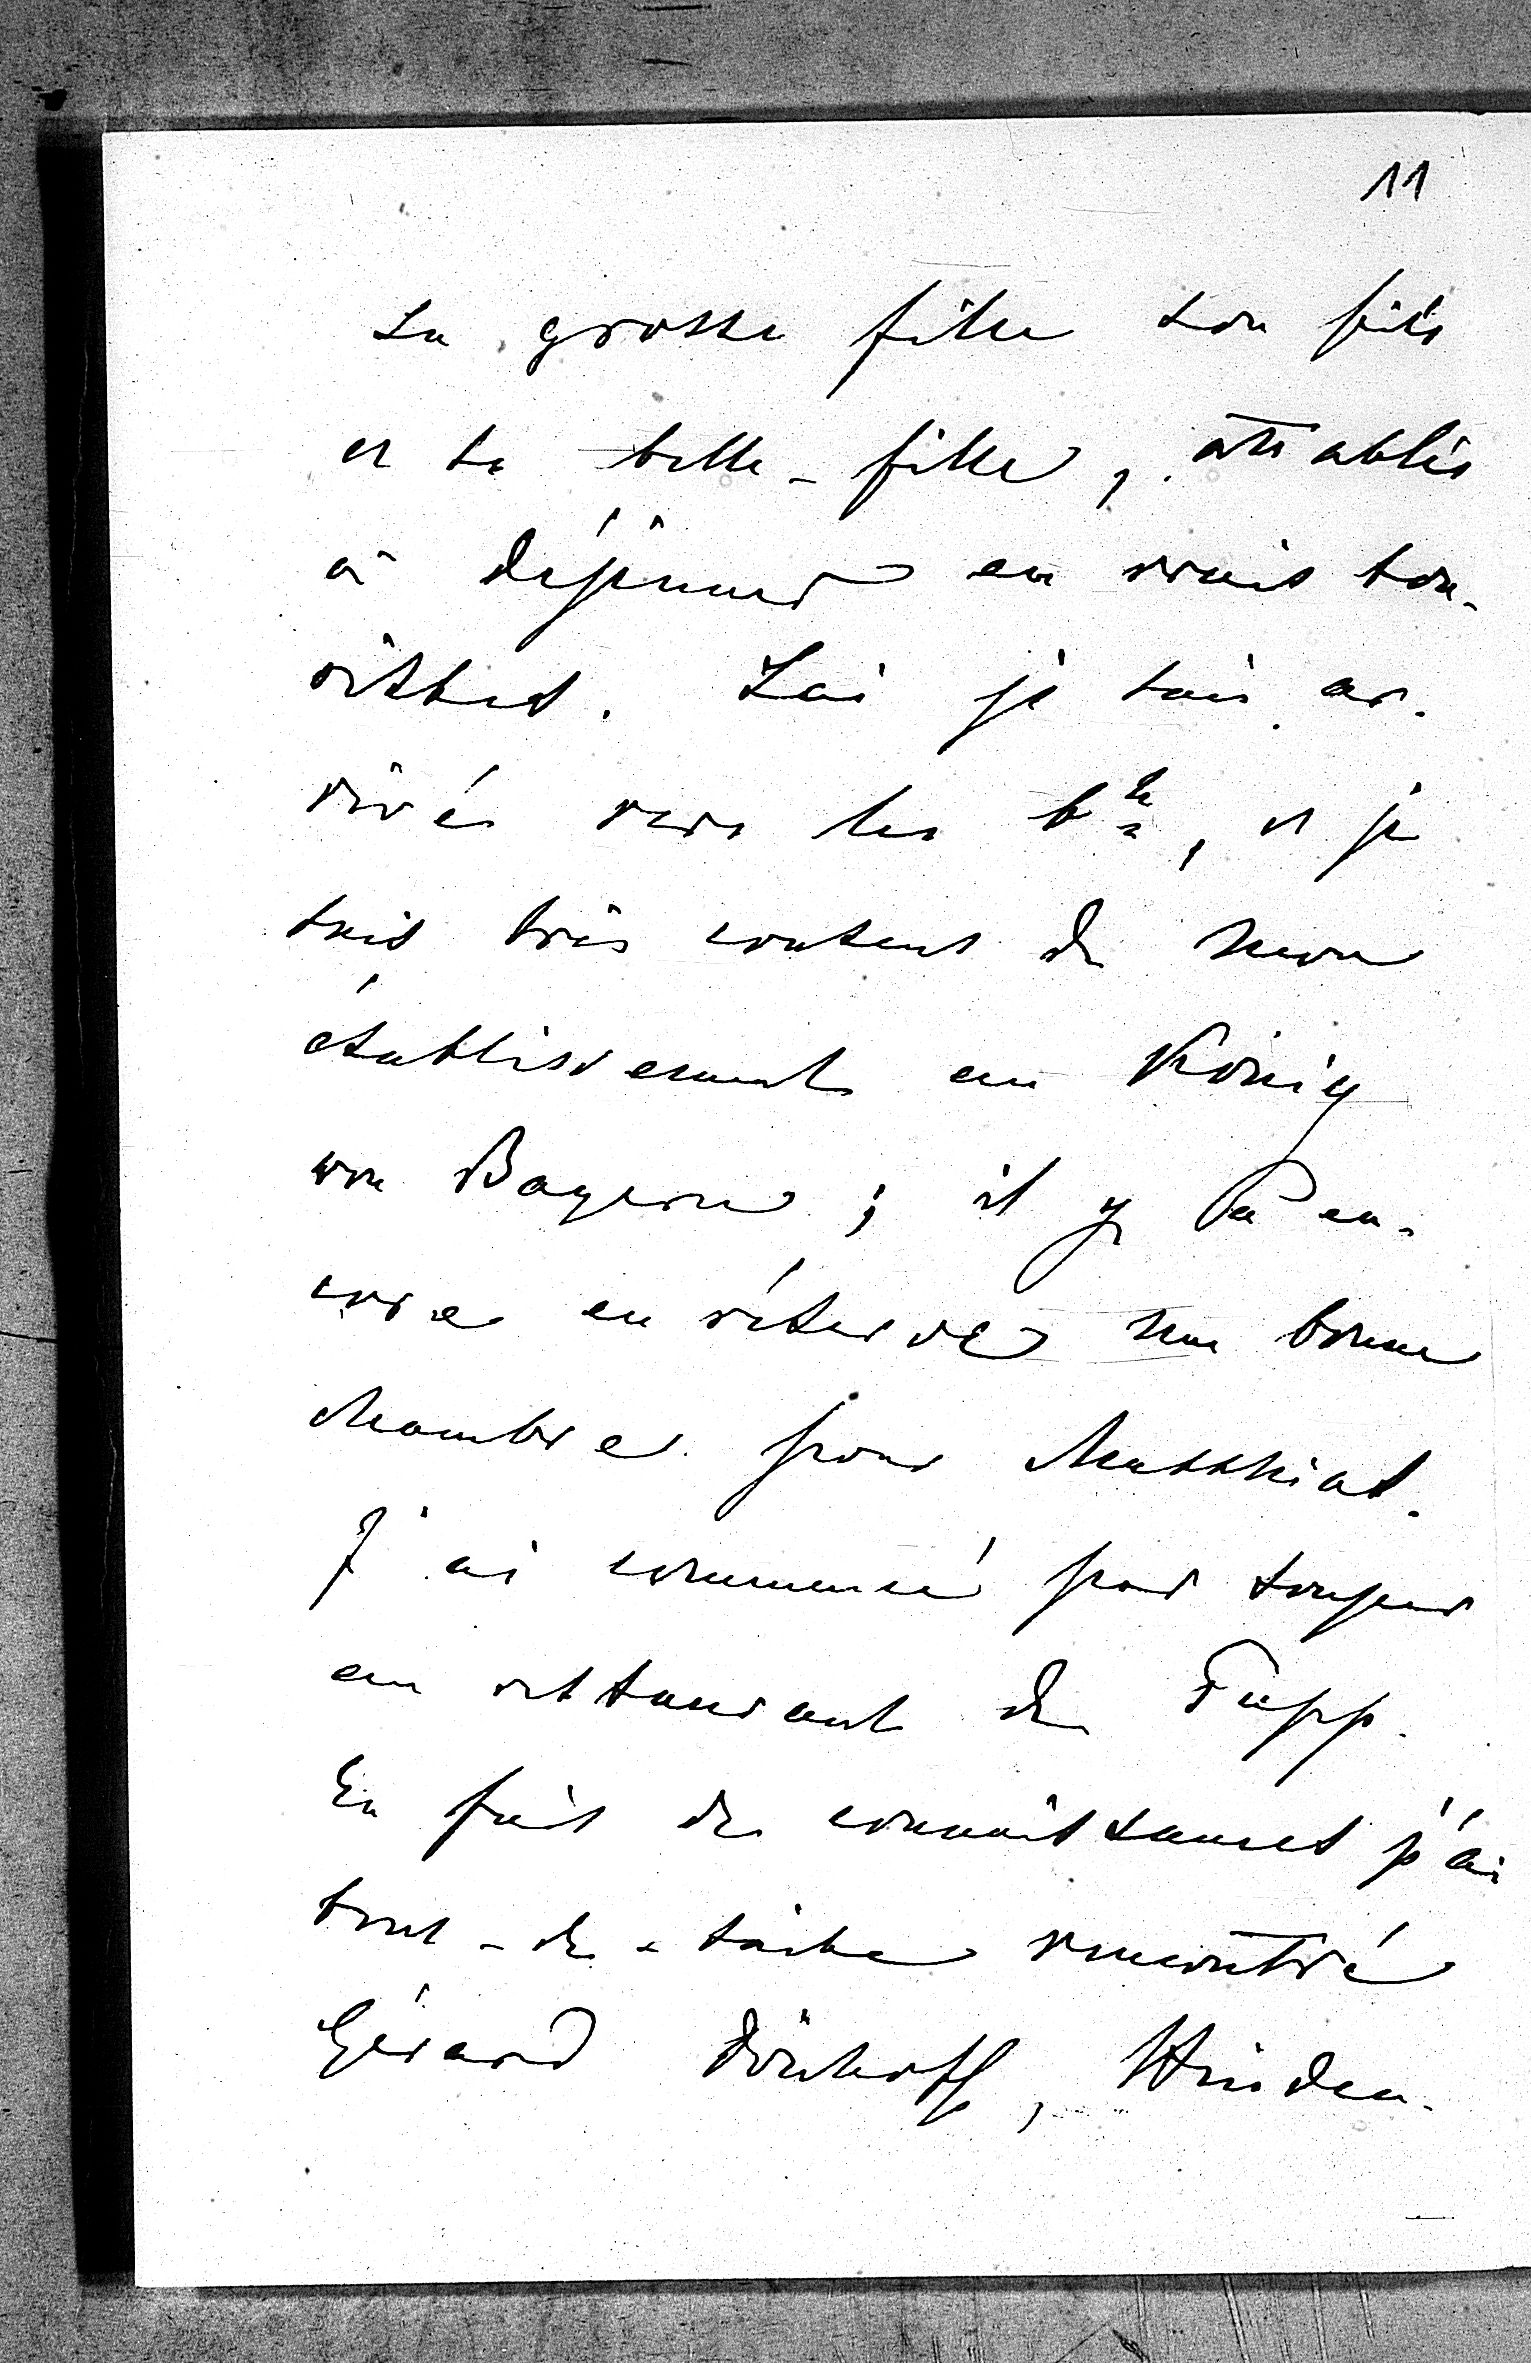 11
sa grosse fille son fils
et sa belle-fille, attablés
à déjeuner en vrais tou-
ristes. Ici je suis ar-
rivé vers les 6 h, et je
suis très content de mon
établissement au König
von Bayern; il y a en-
core en réserve une bonne
chambre pour Matthias.
J'ai commencé par souper
au restaurant de Pupp.
En fait de connaissances j'ai
tout-de-suite rencontré
Gérard Dönhoff, Hinden-